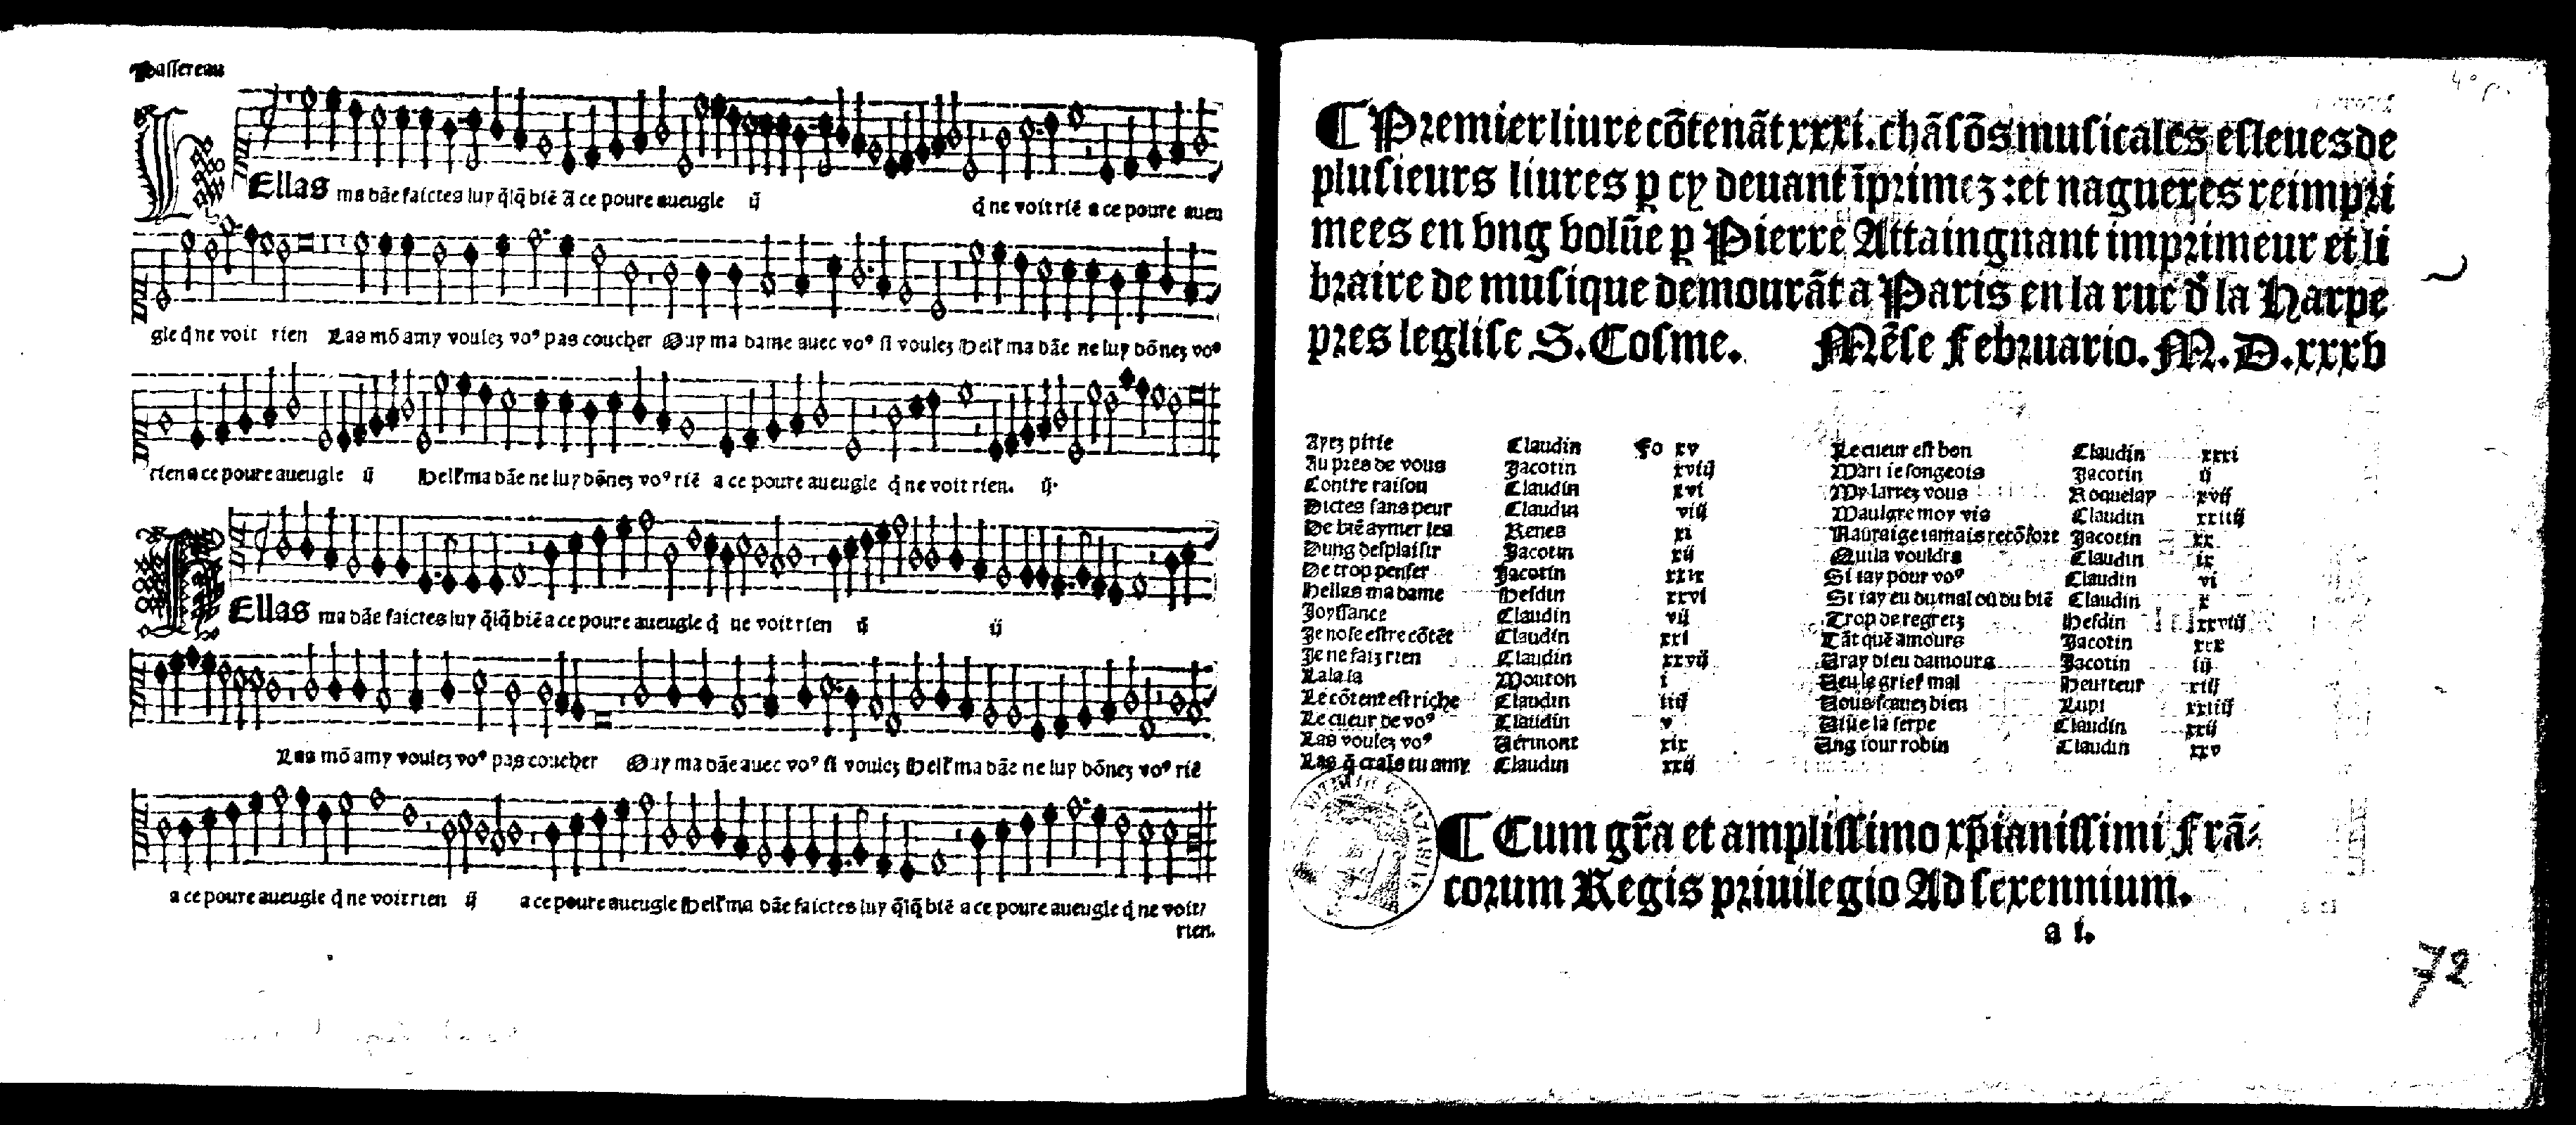 Passereau
Ellas ma dāe faictes luy q̄lq̄ biē ā ce poure aueugle ij q̄ ne voit riē a ce poure aueu
gle q̄ ne voit rien Las mō amy voulez vo⁹ pas coucher Ouy ma dame auec vo⁹ si voulez Hell' ma dāe ne luy dōnez vo⁹
rien a ce poure aueugle ij Hell' ma dāe ne luy dōnez vo⁹ riē a ce poure aueugle q̄ ne voit rien. ij.
Ellas ma dāe faictes luy q̄lq̄ biē a ce poure aueugle q̄ ne voit rien ij ij
Las mō amy voulez vo⁹ pas coucher Ouy ma dāe auec vo⁹ si voulez Hell' ma dāe ne luy dōnez vo⁹ riē
a ce poure aueugle q̄ ne voit rien ij a ce poure aueugle Hell' ma dāe faictes luy q̄lq̄ biē a ce poure aueugle q̄ ne voit/
rien.
¶ Premier liure cōtenāt xxxi. chāsōs musicales esleues de
plusieurs liures p̱ cy deuant īprimez : et nagueres reimpri
mees en vng volūe p̱ Pierre Attaingnant imprimeur et li
braire de musique demourāt a Paris en la rue d̄ la Harpe
pres leglise S. Cosme. Mēse Februario. M. D. xxxv
Ayez pitie Claudin Fo xv
Au pres de vous Jacotin xviij
Contre raison Claudin xvi
Dictes sans peur Claudin viij
De biē aymer les Renes xi
Dung desplaisir Jacotin xij
De trop penser Jacotin xxix
Hellas ma dame Hesdin xxvi
Joyssance Claudin vij
Je nose estre cōtēt Claudin xxi
Je ne faiz rien Claudin xxvij
La la la Mouton i
Le cōtent est riche Claudin iiij
Le cueur de vo⁹ Claudin v
Las voulez vo⁹ Vermont xix
Las q̄ crais tu amy Claudin xxij
Le cueur est bon Claudin xxxi
Mari ie songeois Jacotin ij
My larrez vous Roquelay xvij
Maulgre moy vis Claudin xxiiij
Nauraige iamais recōfort Jacotin xx
Qui la vouldra Claudin ix
Si iay pour vo⁹ Claudin vi
Si iay eu du mal ou du biē Claudin x
Trop de regretz Hesdin xxviij
Tāt que amours Jacotin xxx
Vray dieu damours Jacotin iij
Veu le grief mal Heurteur xiij
Vous scauez bien Lupi xxiiij
Viūe la serpe Claudin xxij
Vng iour robin Claudin xxv
¶ Cum gr̄a et amplissimo xp̄ianissimi Frā⸗
corum Regis priuilegio Ad sexennium.
a i.
72